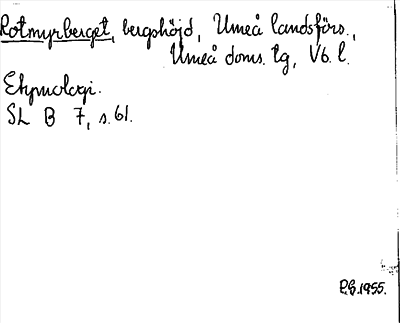 Rotmyrberget, bergshöjd, Umeå landsförs.,
Umeå doms. tg, Vb. l.
Etymologi.
SL B 7, s. 61.
P.G. 1955.